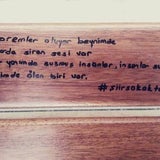 depremler oluyor beynimde
erde siren sesi var
yanımda susmuş insanlar, insanlar su
imde ölen biri var.
#siirsokakta